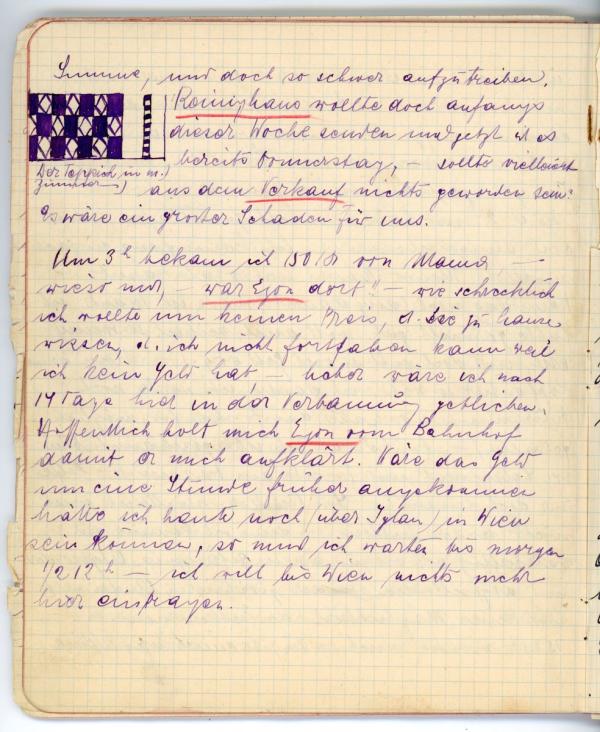 Summe, und doch so schwer aufzutreiben.
Reinighaus wollte doch anfangs
dieser Woche senden und jetzt ist es
bereits Donnerstag, – sollte vielleicht
Der Teppich in m.)
Zimmer –)
aus dem Verkauf nichts geworden sein?
Es wäre ein großer Schaden für uns.
Um 3h bekam ich 150 Kr von Mama, –
wieso nur, – war Egon dort!! – wie schrecklich
ich wollte um keinen Preis, d. Sie zu Hause
wissen, d. ich nicht fortfahren kann weil
ich kein Geld hab, – lieber wäre ich noch
14 Tage hier in der Verbannung geblieben.
Hoffentlich holt mich Egon vom Bahnhof
damit er mich aufklärt. Wäre das Geld
um eine Stunde früher angekommen
hätte ich heute noch (über Iglau) in Wien
sein können, so muß ich warten bis morgen
1/2 12h – ich will bis Wien nichts mehr
hier eintragen.